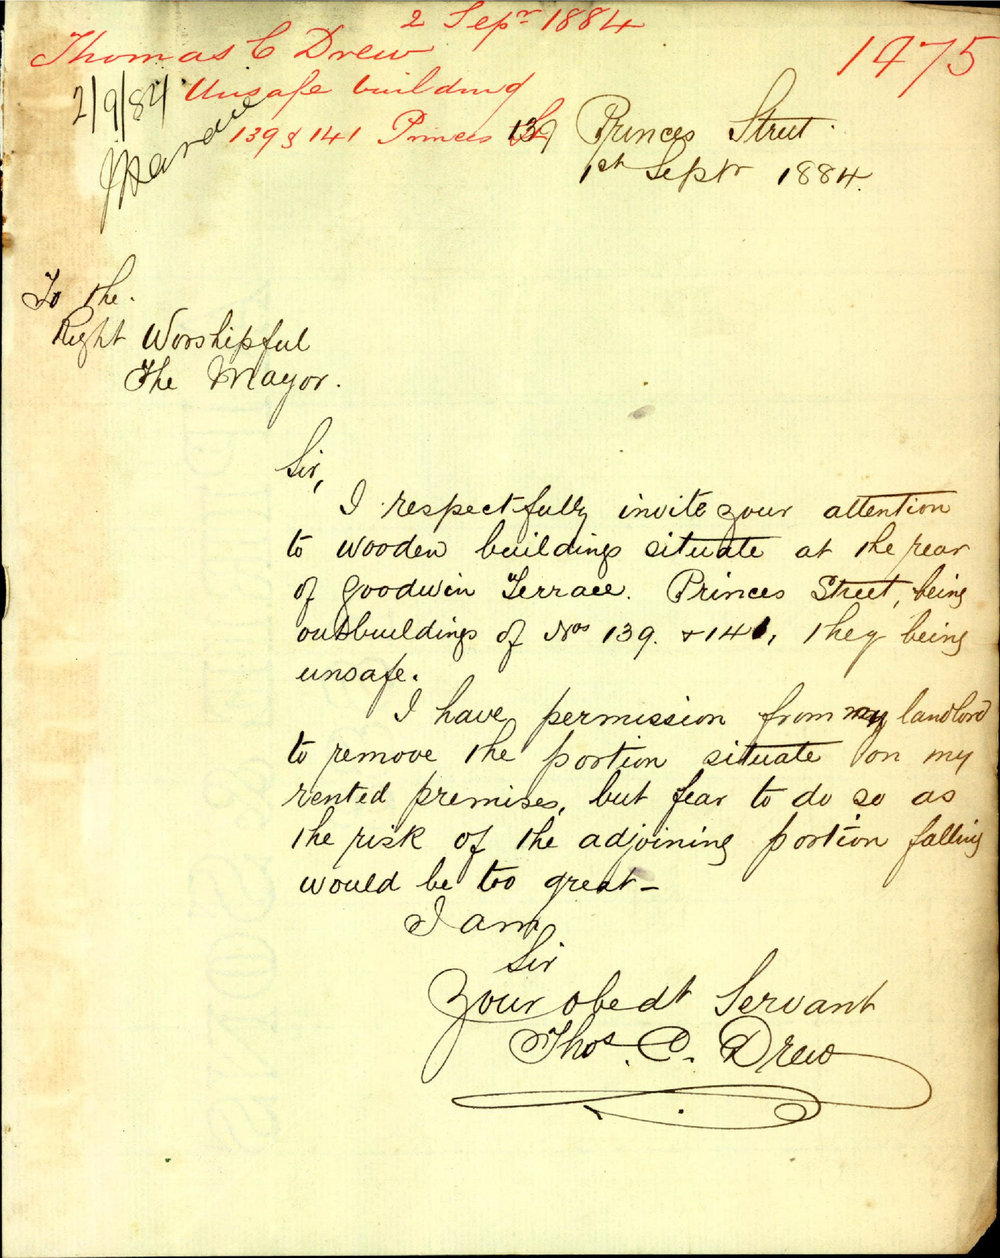 2 Sepr 1884
Thomas C Drew
1475
2/9/84
Unsafe building
139 & 141 Princes St
139 Princes Street.
1st Septr 1884.
To the.
Right Worshipful
The Mayor.
Sir,
I respectfully invite your attention
to wooden buildings situate at the rear
of Goodwin Terrace. Princes Street, being
outbuildings of Nos 139. & 141, they being
unsafe.
I have permission from my landlord
to remove the portion situate on my
rented premises, but fear to do so as
the risk of the adjoining portion falling
would be too great—
I am
Sir
Your obedt Servant
Thos. C. Drew